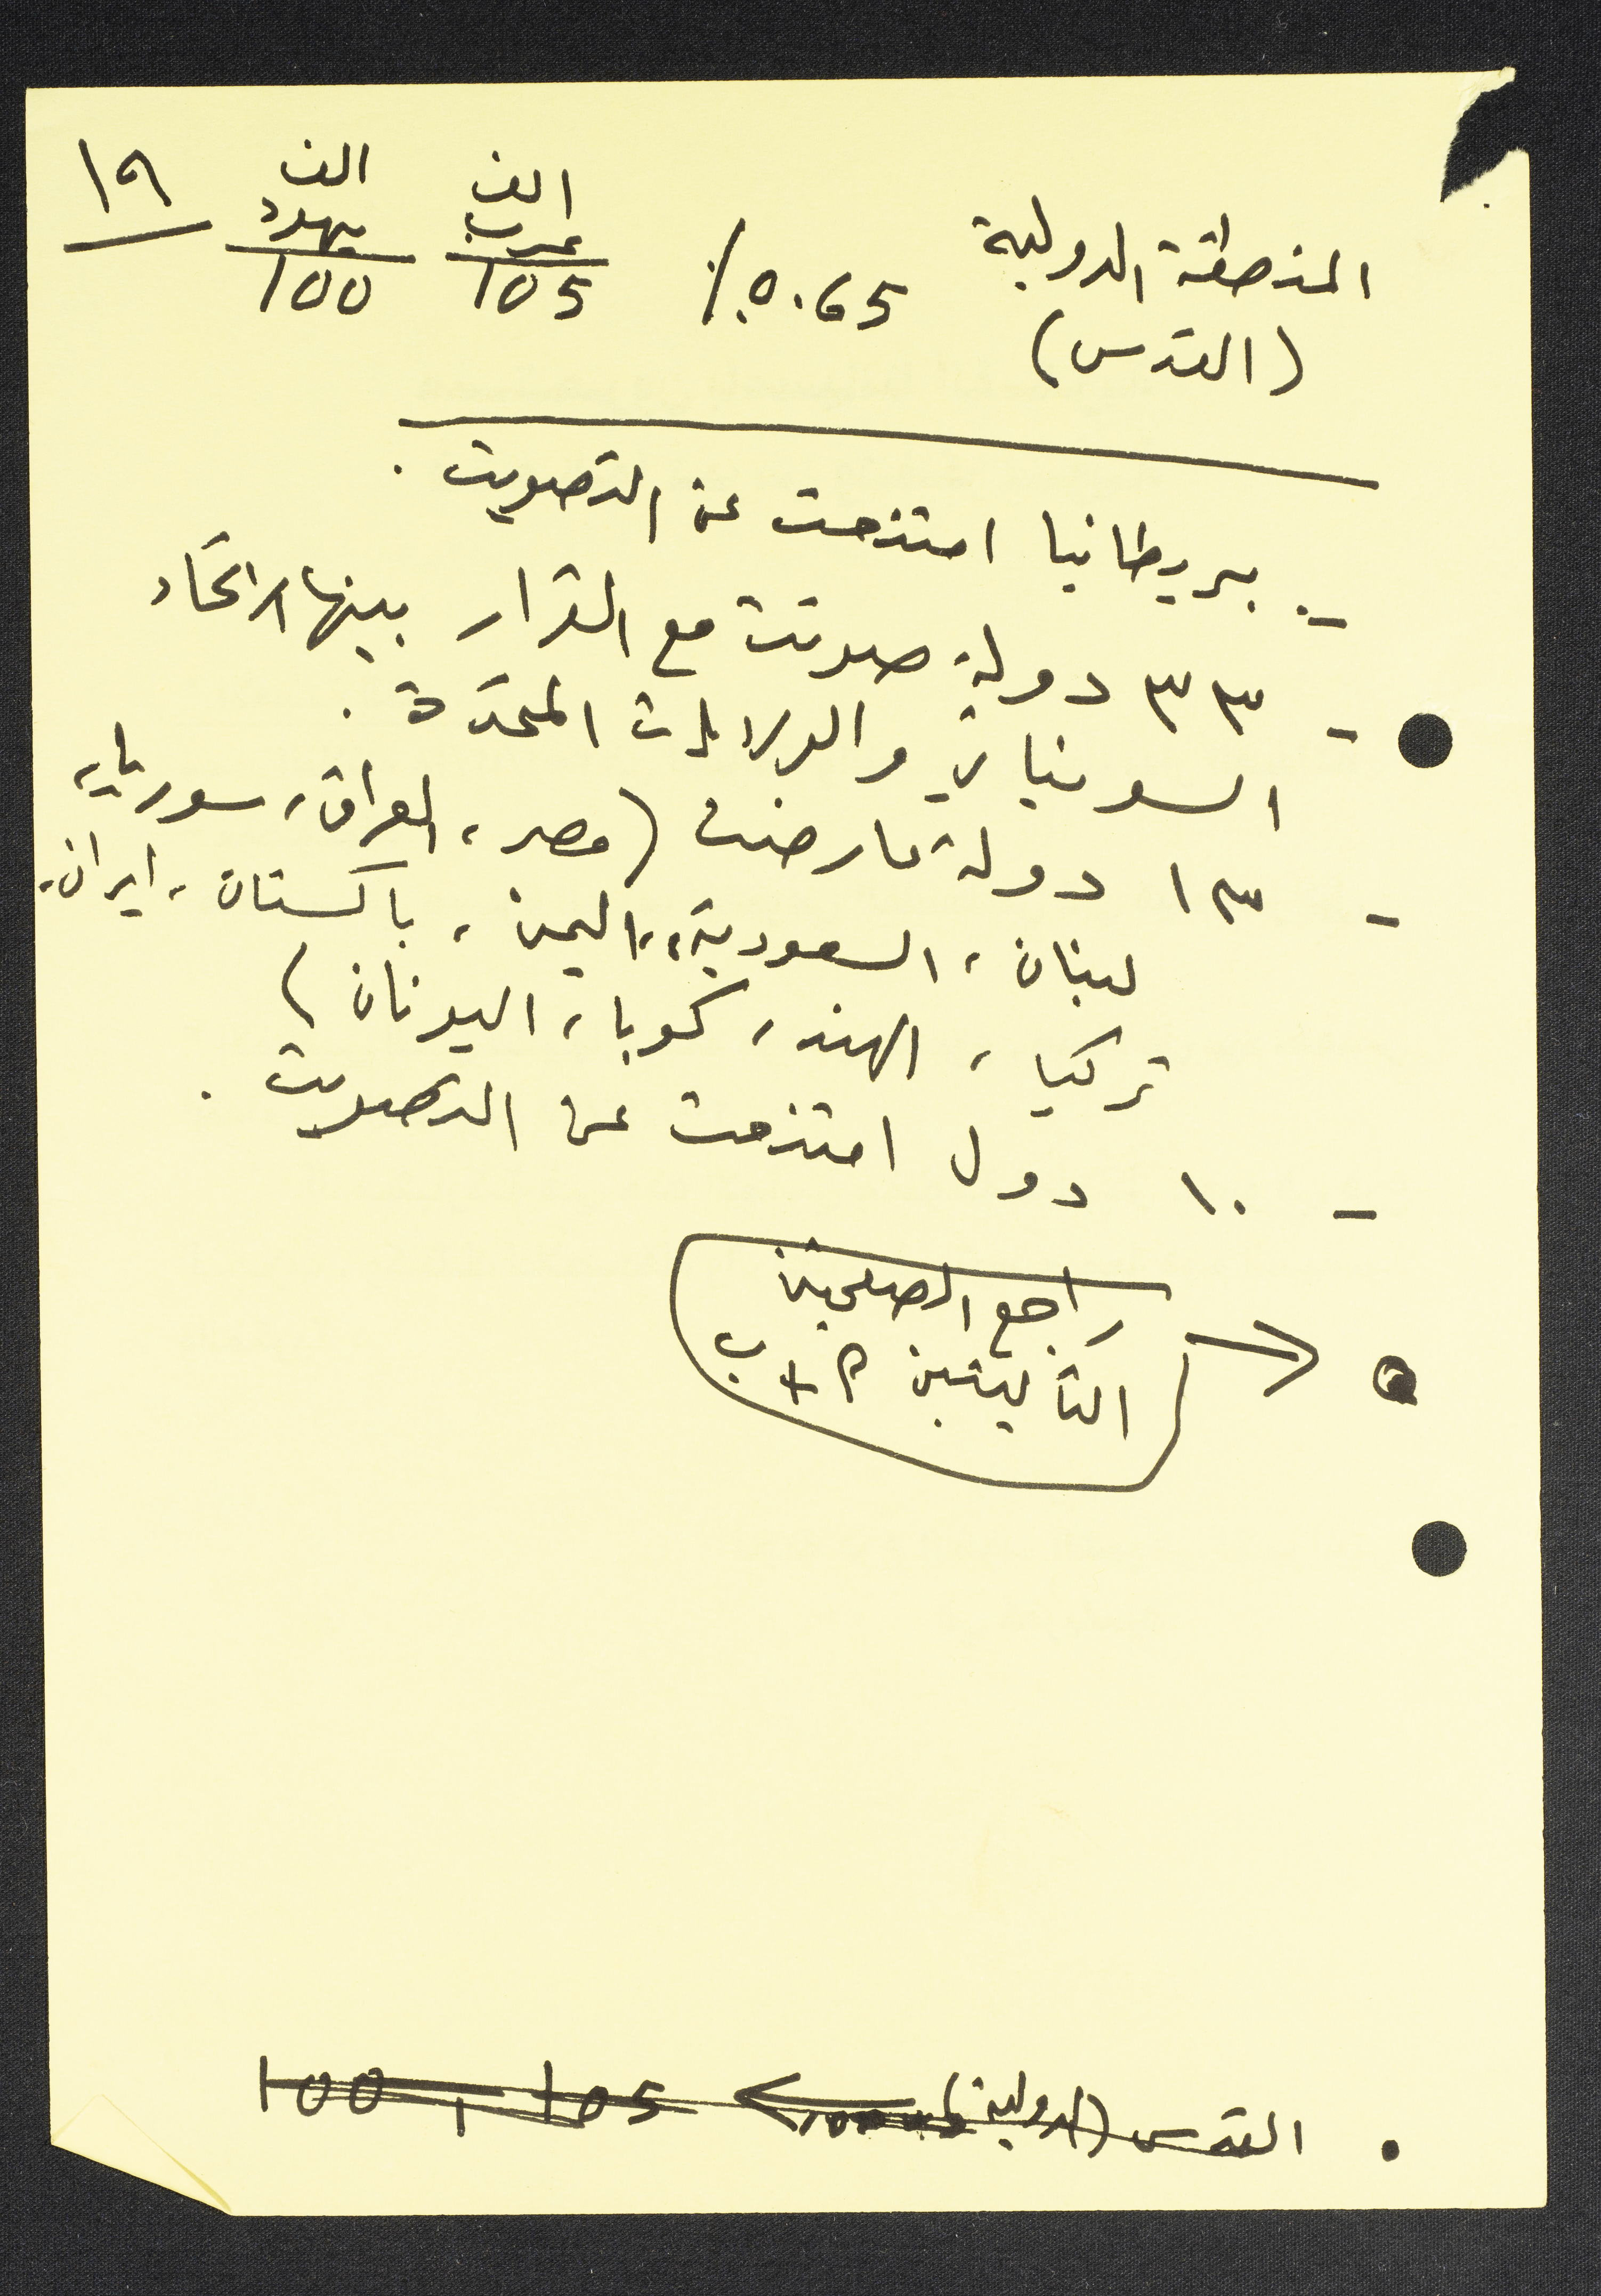 ١٩
المنطقة الدولية 0.65٪ الف عرب الف يهود
(القدس) 105 100
- بريطانيا امتنعت عن التصويت.
- ٣٣ دولة صوتت مع القرار بينها الاتحاد
السوفياتي والولايات المتحدة.
- ١٣ دولة عارضت (مصر، العراق، سوريا،
لبنان، السعودية، اليمن، باكستان، ايران،
تركيا، الهند، كوبا، اليونان)
- ١٠ دول امتنعت عن التصويت.
راجع الصفحتين
التاليتين أ + ب
• القدس (الدولية) 105، 100